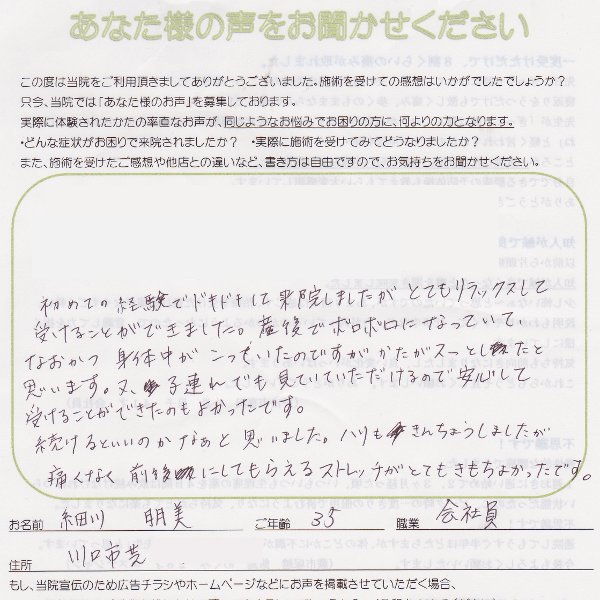 あなた様の声をお聞かせください
この度は当院をご利用頂きましてありがとうございました。施術を受けての感想はいかがでしたでしょうか？
只今、当院では「あなた様のお声」を募集しております。
実際に体験されたかたの率直なお声が、同じようなお悩みでお困りの方に、何よりの力となります。
・どんな症状がお困りで来院されましたか？　・実際に施術を受けてみてどうなりましたか？
また、施術を受けたご感想や他店との違いなど、書き方は自由ですので、お気持ちをお聞かせください。
初めての経験でドキドキして来院しましたが とてもリラックスして
受けることができました。産後でボロボロになっていて、
なおかつ 身体中が こっていたのですが かたがスーっとしたと
思います。又、子連れでも見ていていただけるので安心して
受けることができたのもよかったです。
続けるといいのかなぁと思いました。ハリも きんちょうしましたが
痛くなく 前後にしてもらえるストレッチがとてもきもちよかったです。
お名前 細川 明美 ご年齢 35 職業 会社員
住所 川口市芝
もし、当院宣伝のため広告チラシやホームページなどにお声を掲載させていただく場合、